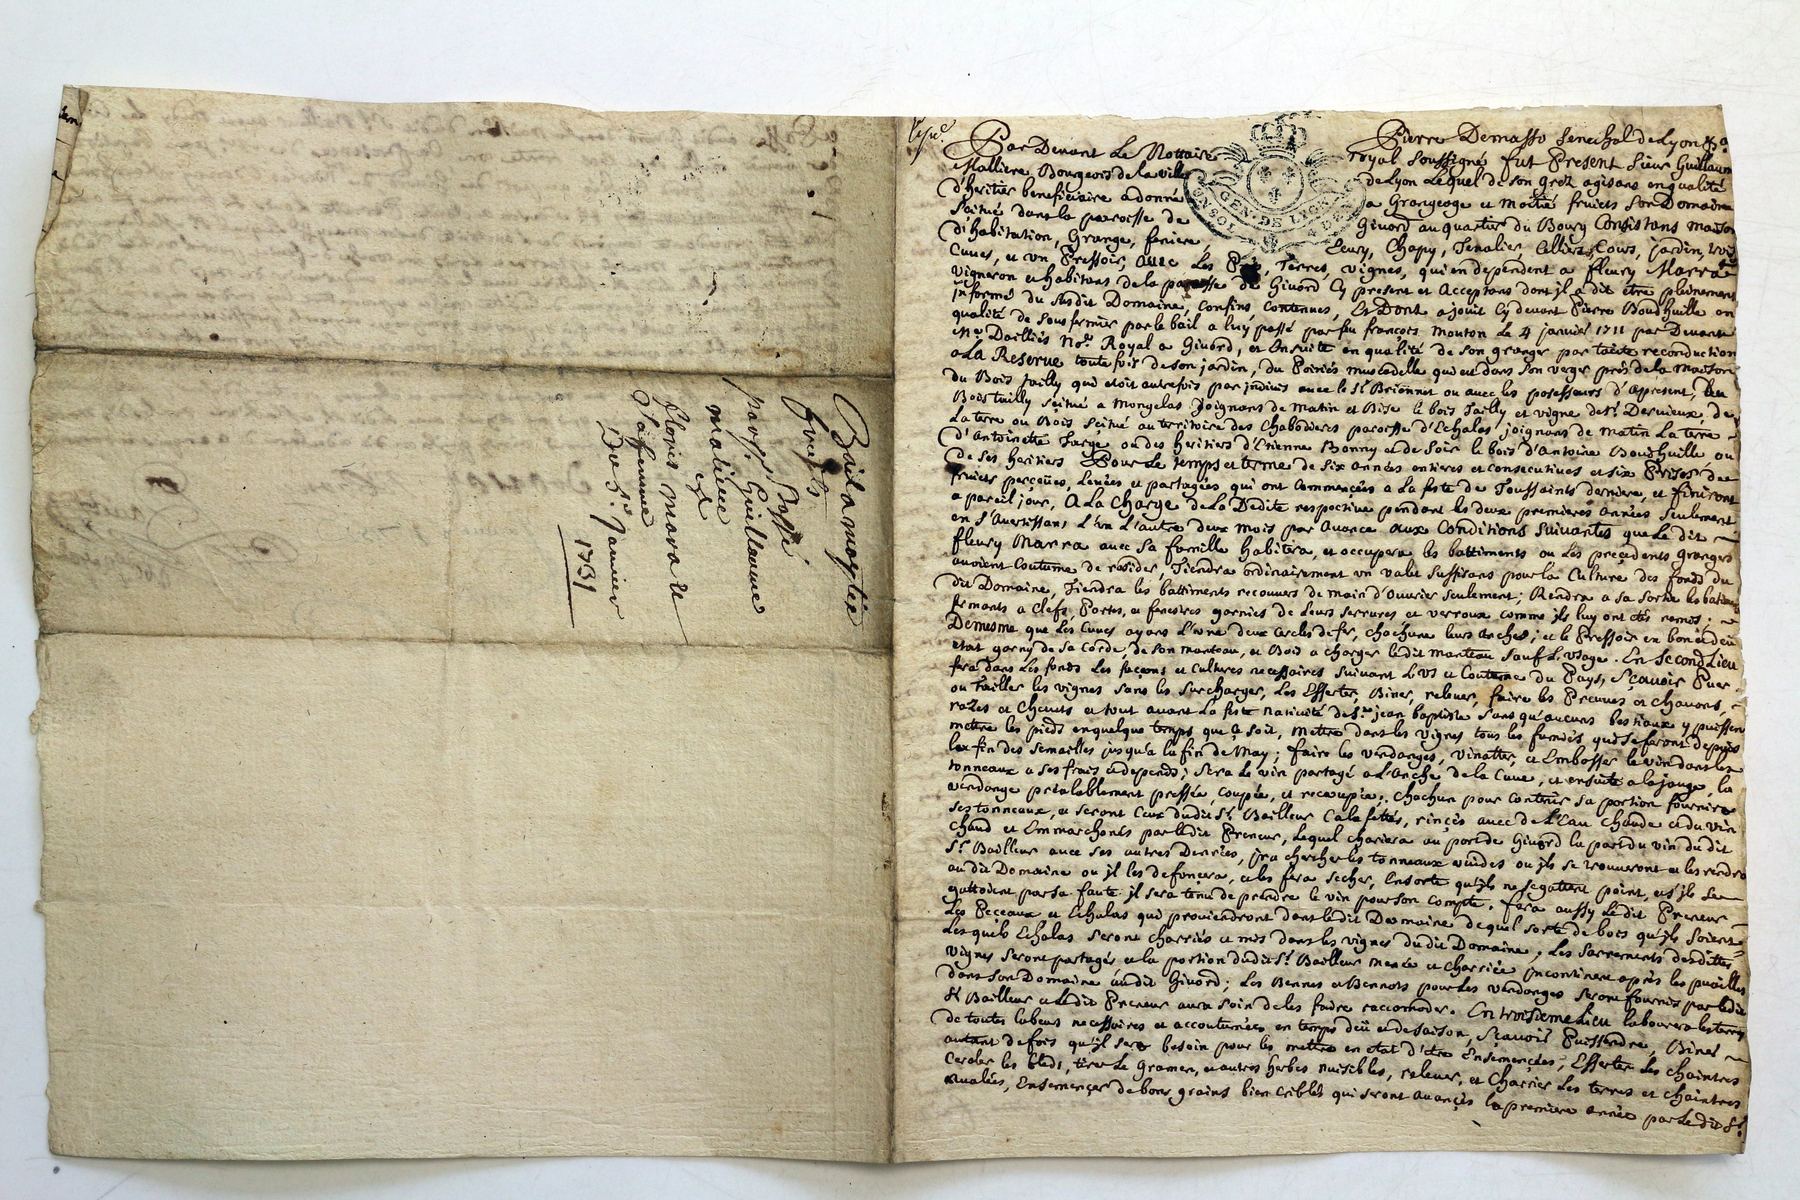 Bail a moytié
fruits passé
par Sr. Guillaume
maliere
et
fleurie mara et
Sa femme
Du 5e. Janvier
1731
Par Devant Le Nottaire Pierre Demasso Senechal de Lyon &a
royal soussigné fut Present Sieur Guillaume
Malliere Bourgeois de la ville de Lyon Lequel de son grez agisans en qualité
d'heritier beneficiaire a donné a Grangeage et moitié fruicts Son Domaine
Scitué dans la paroisse de Givord au quartier du Bourg Consistans maison
d'habitation, Grange, feniere, Ecury, Chapy, Tenalier, Cellier, Cours, jardin, trois
Cuves, et un Pressoir, avec Les Prés, Terres, vignes, qui en dependent a fleury Marra
vigneron et habitans de la paroisse de Givord Cy present et Acceptans dont jl a dit etre pleinement
jnformé du susdit Domaine, Confins, Contenues, Et Dont a jouit Cy devant Pierre Bouthuille en
qualité de Sousfermier par le bail a luy passé par feu françois Mouton Le 4 janvier 1711 par Devant
Me. Dailliés Nore. Royal a Givord, et Ensuite en qualité de Son granger par tacite reconduction
a La Reserve toute fois de son jardin, du Poiriés muscadelle qui est dans Son verger prés de la maison
du Bois Tailly qui etoit autrefois par jndivis avec le Sr. Brionnet ou avec les possesseurs d'apresent, du
Bois tailly Scitué a Mongelas Joignans de Matin et Bise le bois Tailly et vigne de Sr. Dervieux, de
La terre ou Bois Scitué au territoire des Chabodieres paroisse d'Echalas joignans de matin La terre
d'Antoinette Farge ou des heritiers d'Etienne Bonny et de Soir le bois d'Antoine Bouthuille ou
de Ses heritiers Pour Le temps et terme de Six années entieres et consecutives et Six Prises de
fruicts perçeües, Levées et partagées qui ont Commencées a La feste de Toussaints derniere, et finiront
a pareil jour, A La Charge de La Dedite respective pendant les deux premieres années Seulement
en S'avertissans L'un L'autre deux mois par avance aux Conditions Suivantes que Le dit
fleury Marra avec Sa famille habitera, et occupera les battiments ou Les preçedents grangers
avoient Coutume de resider, Tiendra ordinairement un valet Suffisans pour la Culture des fonds du
dit Domaine, Tiendra les battiments recouvers de main d'Ouvrier Seulement; Rendra a Sa Sortie les batiments
fermants a Clefs, Portes, et fenestres garnies de Leurs Serrures et verroux comme jls luy ont etés remis;
Demesme que Les Cuves ayans L'une deux Cercles de fer, chachune leurs anches; et le Pressoir en bon et deü
etat garny de Sa Corde, de Son manteau, et Bois a charger Ledit manteau Sauf L'usage. En Second Lieu
fera dans Les fonds Les façons et Cultures necessaires Suivant L'us et Coutume du Pays, Sçavoir Puer
ou Tailler les vignes Sans les Surcharger, Les Esserter, Biner, relever, faire les Preuves et Chavons,
razes et Chevets et tout avant La feste nativité de St. jean baptiste Sans qu'aucuns bestiaux y puissent
mettre les pieds en quelque temps que Ce Soit, mettre dans les vignes tous les fumiés qui Se feront depuis
La fin des Semailles jusqu'a la fin de May; faire les vendanges, vinatter, et Embosser le vin dans les
tonneaux a Ses frais et depends; Sera Le vin partagé a L'anche de la Cuve, et ensuite a la jauge, la
vendange préalablement pressée, coupée, et recoupée; Chachun pour contenir Sa portion fournira
Ses tonneaux, et Seront Ceux dudit Sr. Bailleur Calafettés, rincés avec de L'Eau chaude et du vin
chaud et Emmarchonés par Ledit Preneur, Lequel chariera au port de Givord La part du vin du dit
Sr. Bailleur avec Ses autres Denrées, jra chercher les tonneaux vuides ou jls Se trouveront et les rendra
au dit Domaine ou jl les defonçera, et les fera Secher, Ensorte qu'jls ne Se gattent point, et S'jls Se
gattoient par Sa faute jl Sera tenu de prendre le vin pour Son compte. fera aussy Le dit Preneur
Les Peçeaux et Echalas qui proviendront dans le dit Domaine de quel Sorte de bois qu'jls Soient
Lesquels Echalas Seront charriés et mis dans les vignes du dit Domaine, Les Sarrements desdittes
vignes Seront partagés et la portion dudit Sr. Bailleur menée et charriée jncontinent après les puailles
dans Son Domaine audit Givord; Les Bennes et Bennots pour Les vendanges Seront fournis par ledit
Sr. Bailleur et Le dit Preneur aura Soin de les faire raccomoder. En troisieme Lieu labourera les terres
de toutes labeurs necessaires et accoutumées en temps deü et de Saison, Sçavoir Puissendre, Biner
autant de fois qu'jl Sera besoin pour les mettre en etat d'etre Ensemençées, Esserter Les chaintres
Cercler les bleds, tirer Le Gramen, et autres herbes nuisibles, relever, et Charrier Les terres et chaintres
avalées, Ensemençer de bons grains bien criblés qui Seront avançés la premiere année par Le dit Sr.
GEN. DE LION